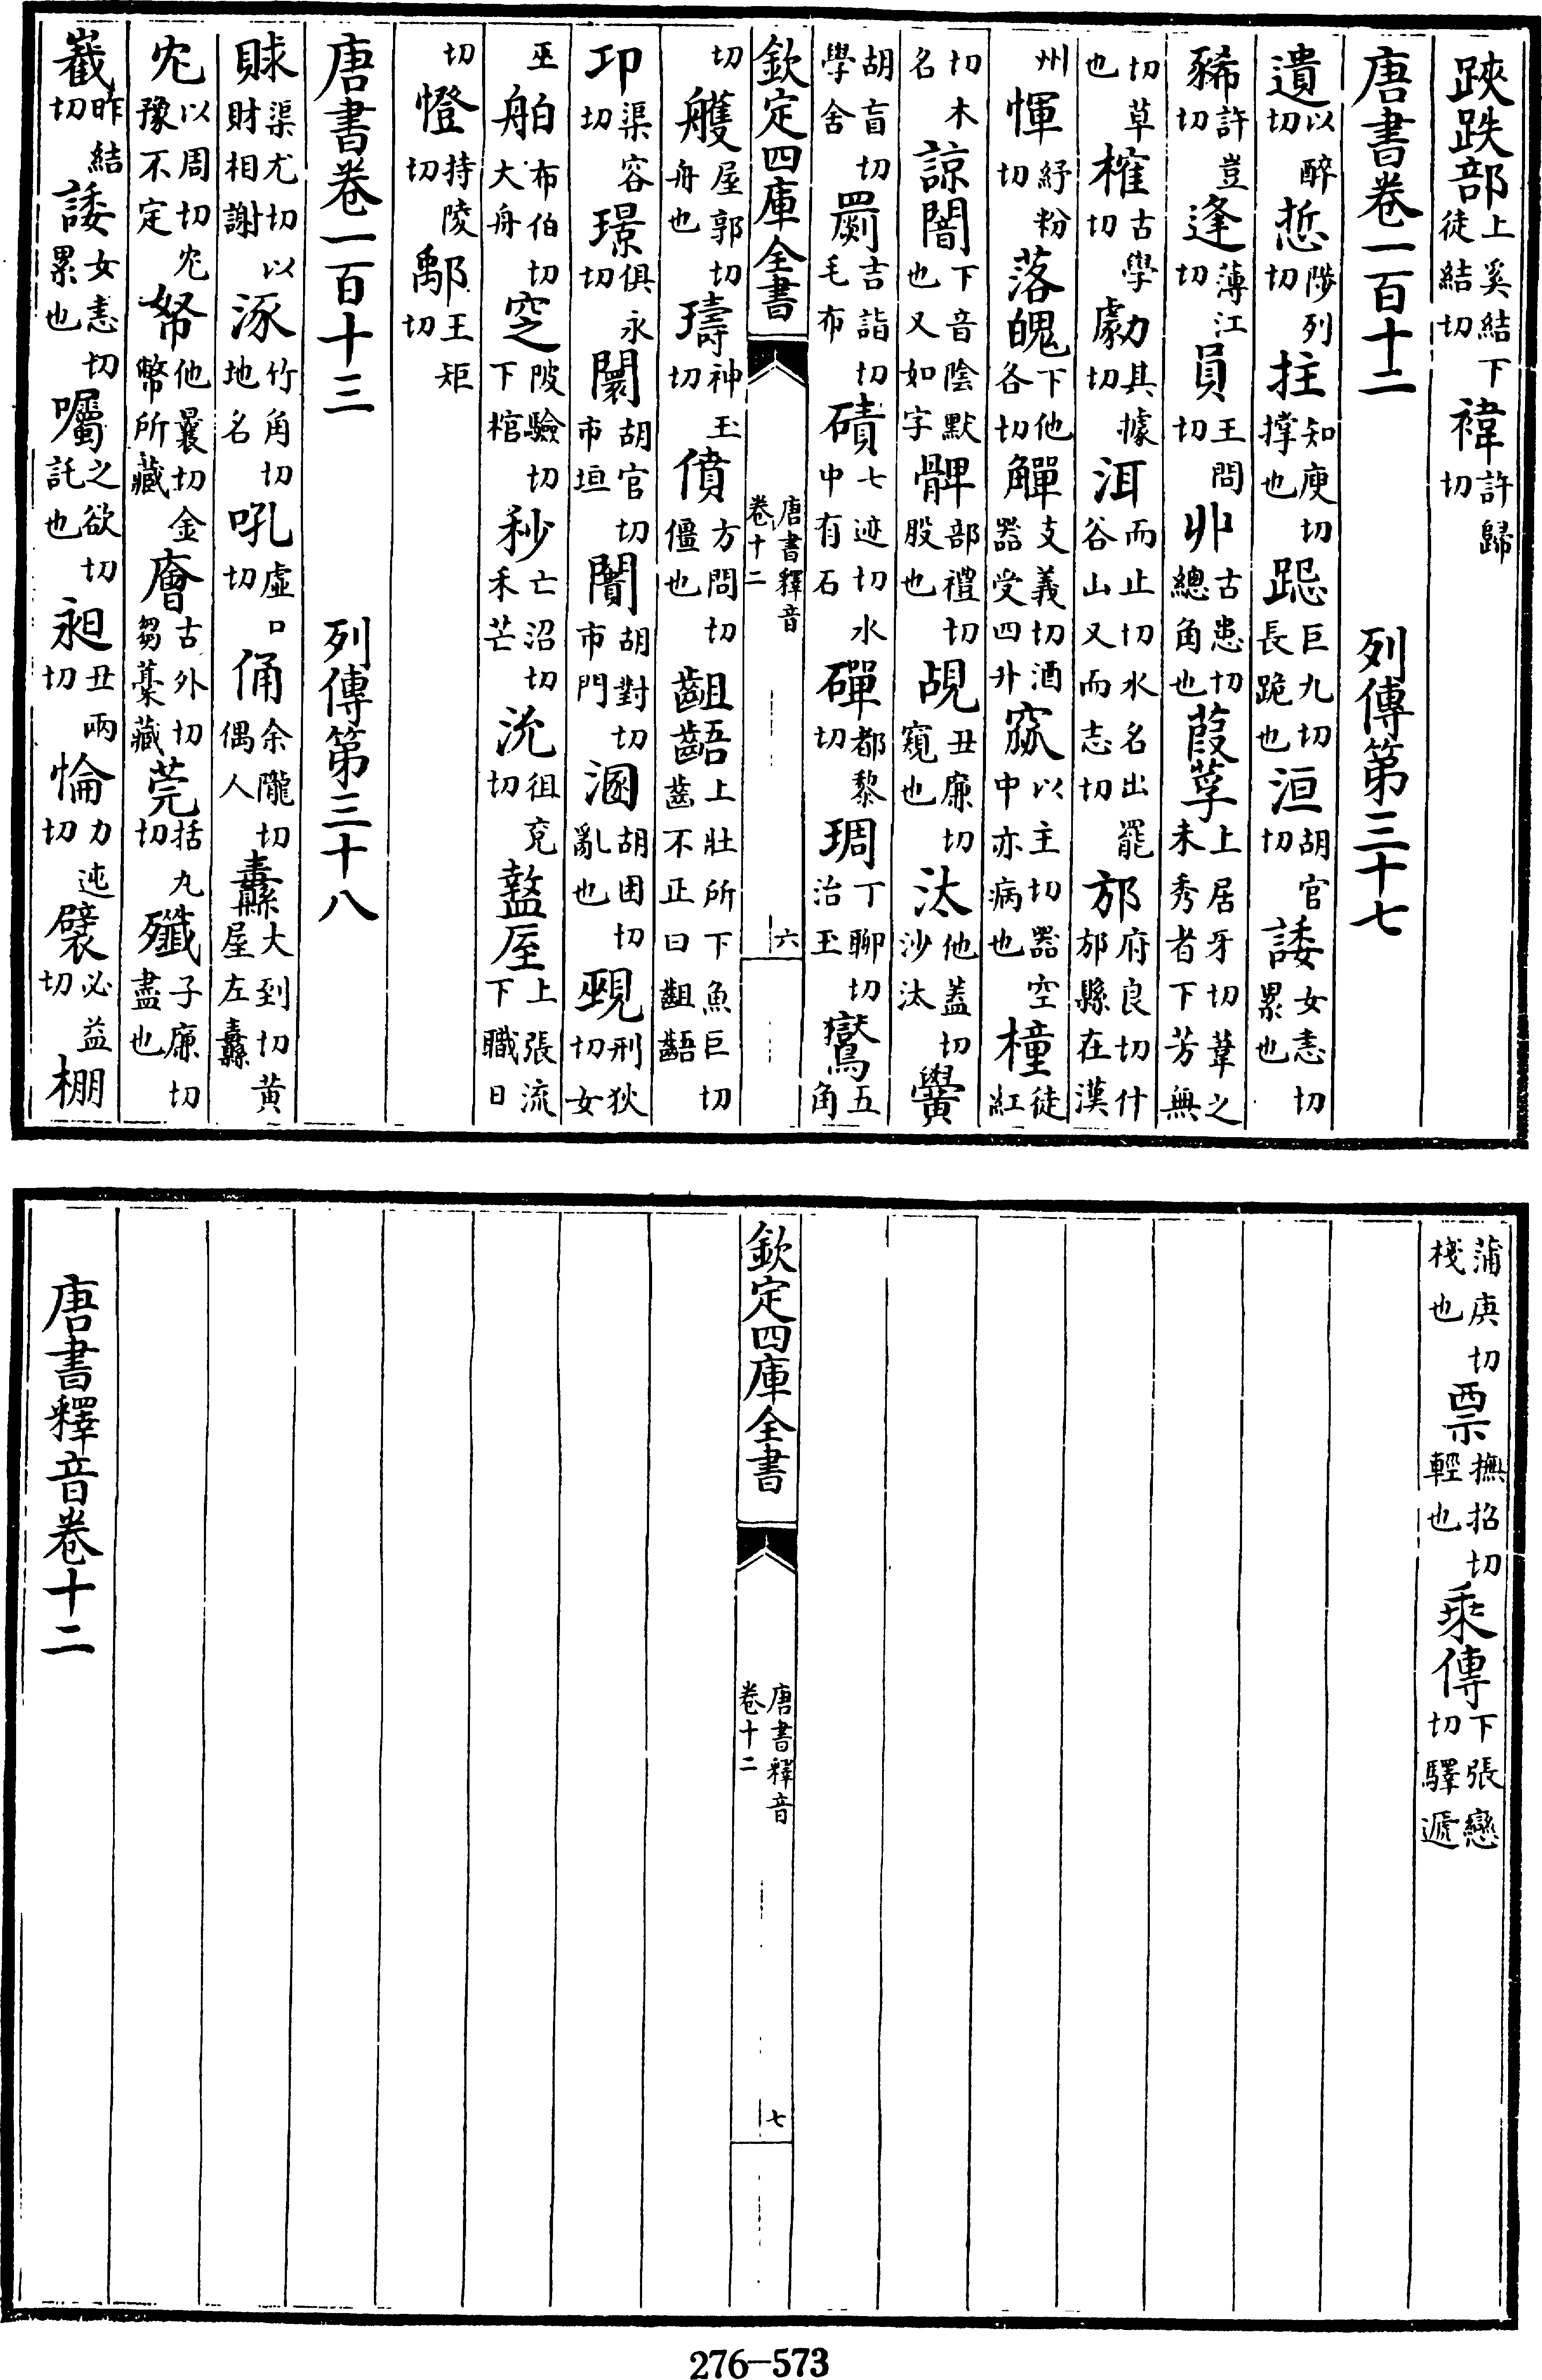 跌部上奚結下徒結切褘許歸切
唐書卷一百十二 列傳第三十七
遺以醉切悊陟列切拄知庾切撑也跽巨九切長跪也洹胡官切諉女恚切累也
豨許豈切逢薄江切員王問切丱古患切總角也葭莩上居牙切葦之未秀者下芳無
切草也榷古學切勮其據切洱而止切水名出罷谷山又而志切邡府良切什邡縣在漢
州惲紓粉切落魄下他各切觶支義切酒器受四升窳以主切器空中亦病也橦徒紅
切木名諒闇下音陰默也又如字髀部禮切股也覘丑廉切窺也汰他蓋切沙汰黌
胡盲切學舍罽吉詣切毛布磧七迹切水中有石磾都黎切琱丁聊切治玉鸑五角
欽定四庫全書 唐書釋音 卷十二 六
切艧屋郭切舟也璹神玉切僨方問切僵也齟齬上壯所下魚巨切齒不正曰齟齬
卭渠容切璟俱永切闤胡官切市垣闠胡對切市門溷胡困切亂也覡刑狄切女
巫舶布伯切大舟窆陂驗切下棺秒亡沼切禾芒沇徂兗切盩厔上張流下職日
切憕持陵切鄅王矩切
唐書卷一百十三 列傳第三十八
賕渠尤切以財相謝涿竹角切地名吼虛口切俑余隴切偶人纛大到切黃屋左纛
冘以周切冘豫不定帑他曩切金幣所藏廥古外切芻藁藏莞括九切殲子廉切盡也
嶻昨結切諉女恚切累也囑之欲切託也昶丑兩切惀力迍切襞必益切棚
蒲庚切棧也票撫招切輕也乘傳下張戀切驛遞
欽定四庫全書 唐書釋音 卷十二 七
唐書釋音卷十二
276-573